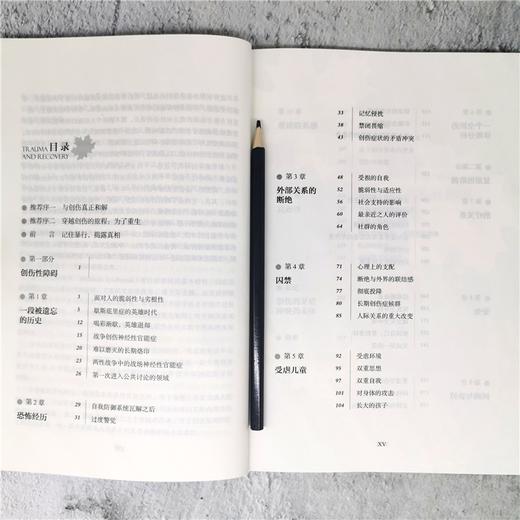 TRAUMA
AND RECOVERY
目录
推荐序一 与创伤真正和解
推荐序二 穿越创伤的旅程：为了重生
前 言 记住暴行，揭露真相
第一部分
创伤性障碍 1
第 1 章 3 面对人的脆弱性与劣根性
一段被遗忘 5 歇斯底里症的英雄时代
的历史 12 喝彩渐歇，英雄退却
15 战争创伤神经性官能症
20 难以磨灭的长期烙印
23 两性战争中的战场神经性官能症
26 第一次进入公共讨论的领域
第 2 章 29 自我防御系统瓦解之后
恐怖经历 31 过度警觉
33 记忆侵扰
38 禁闭畏缩
43 创伤症状的矛盾冲突
第 3 章 48 受损的自我
外部关系的 52 脆弱性与适应性
断绝 56 社会支持的影响
60 最亲近之人的评价
64 社群的角色
第 4 章 71 心理上的支配
囚禁 74 断绝与外界的联结感
77 彻底投降
80 长期创伤症候群
85 人际关系的重大改变
第 5 章 92 受虐环境
受虐儿童 95 双重思想
97 双重自我
101 对身体的攻击
104 长大的孩子
XV